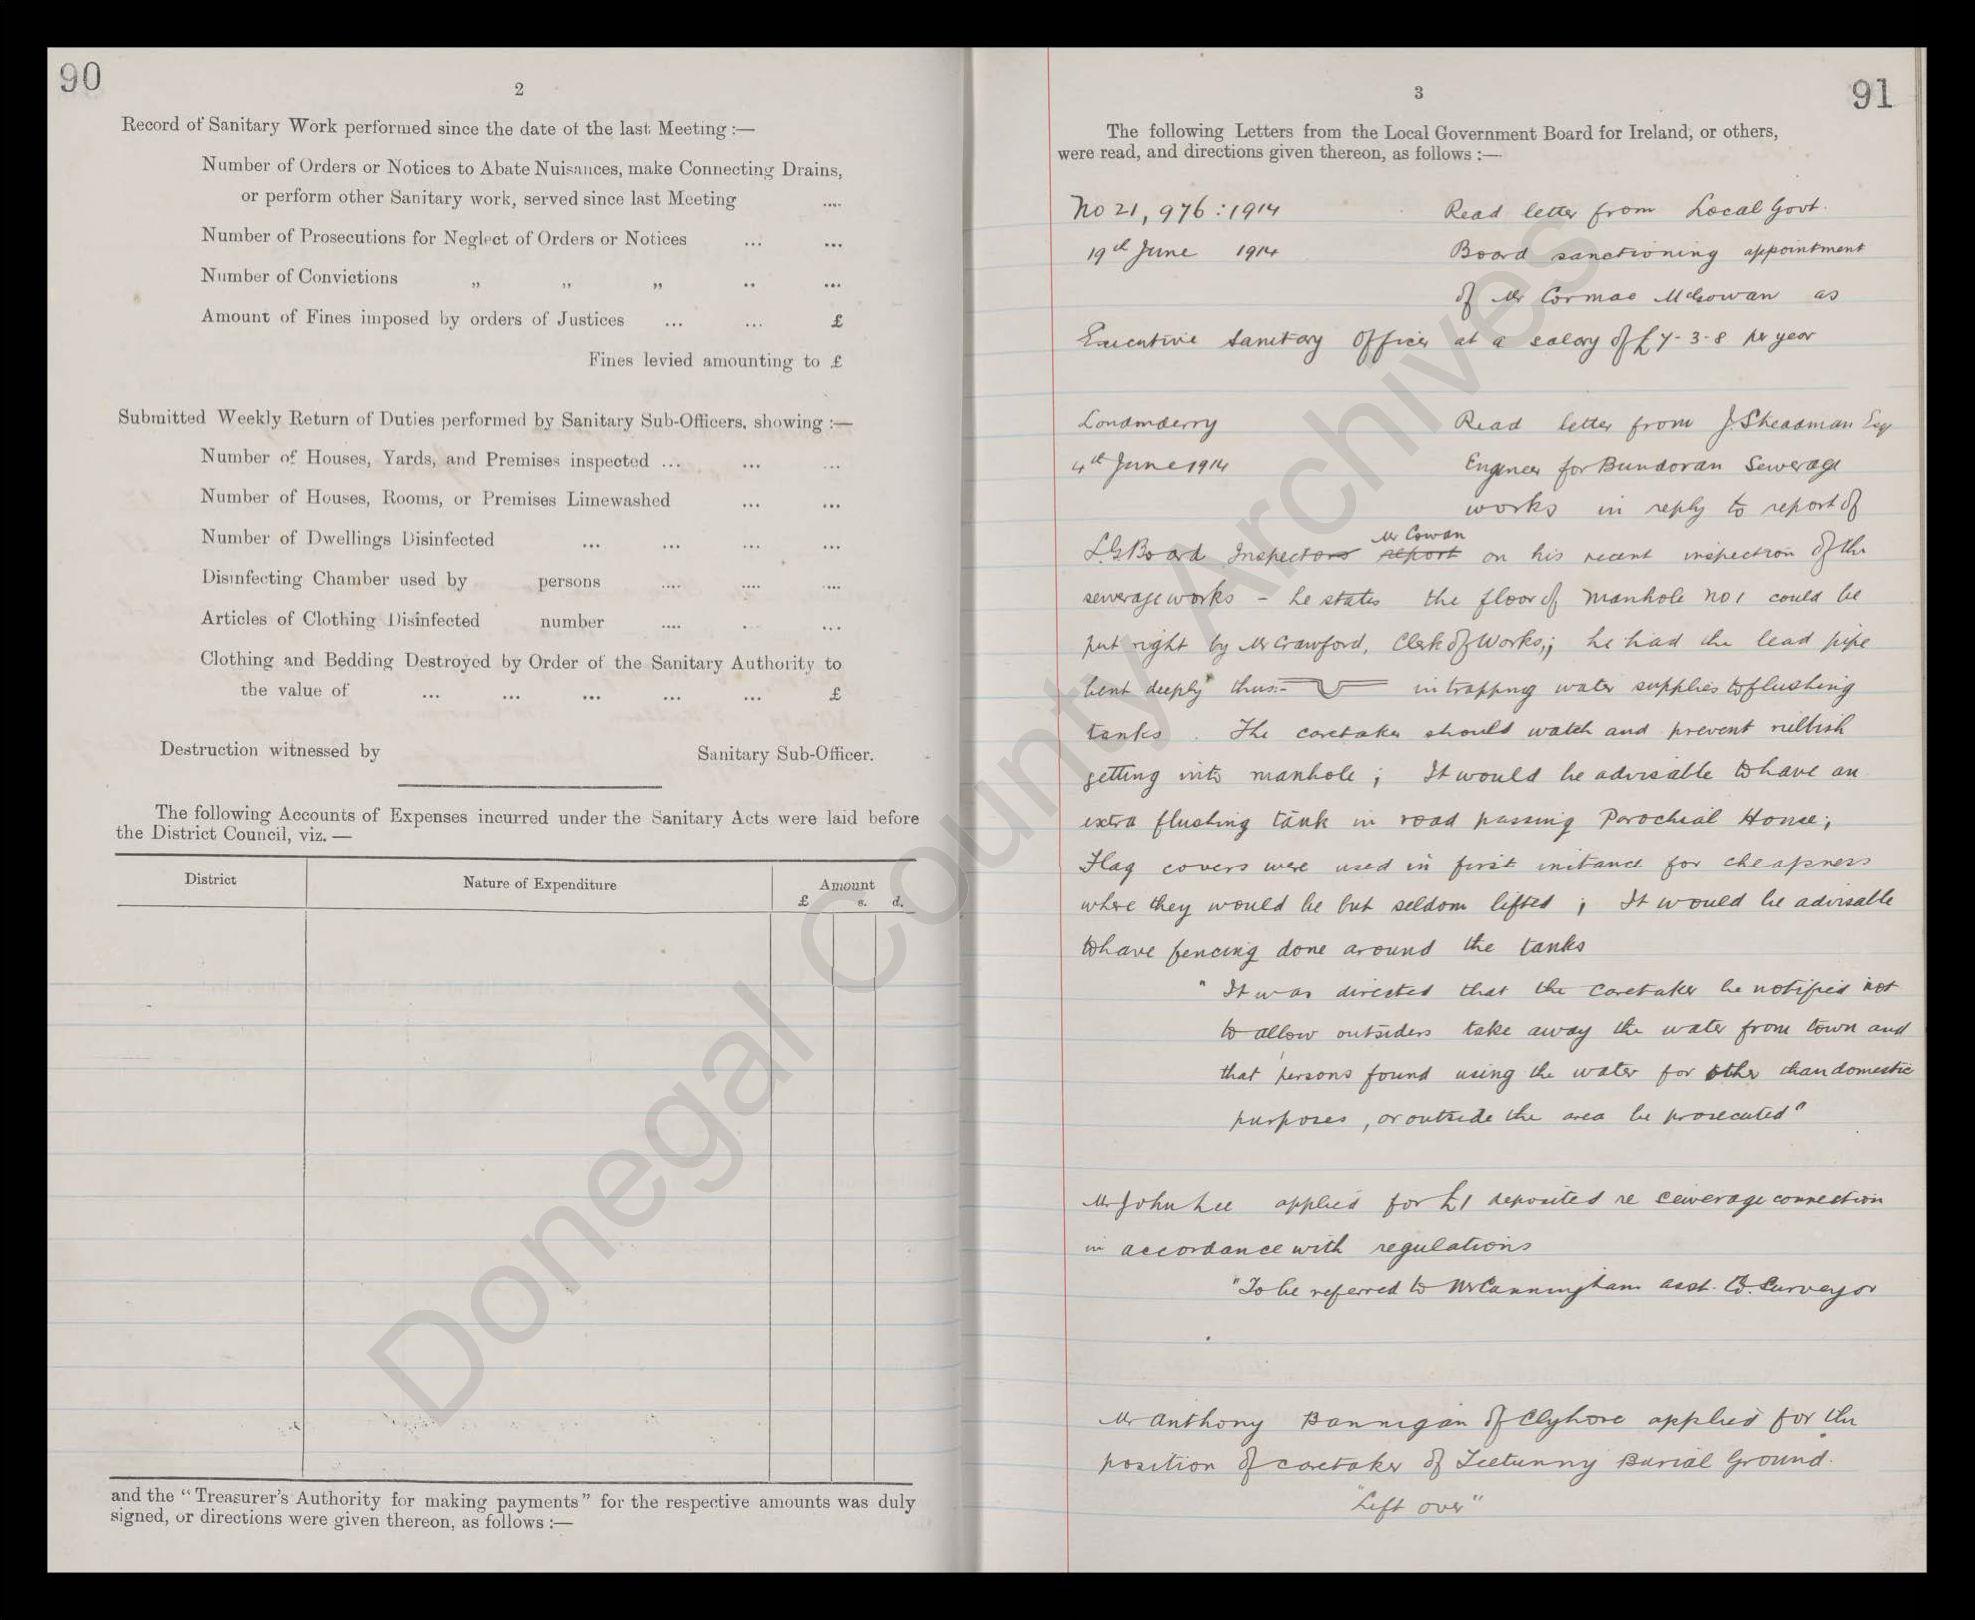 90
2
Record of Sanitary Work performed since the date of the last Meeting :—
Number of Orders or Notices to Abate Nuisances, make Connecting Drains,
or perform other Sanitary work, served since last Meeting ....
Number of Prosecutions for Neglect of Orders or Notices ... ...
Number of Convictions „ „ „ .. ...
Amount of Fines imposed by orders of Justices ... ... £
Fines levied amounting to £
Submitted Weekly Return of Duties performed by Sanitary Sub-Officers, showing :—
Number of Houses, Yards, and Premises inspected ... ... ...
Number of Houses, Rooms, or Premises Limewashed ... ...
Number of Dwellings Disinfected ... ... ... ...
Disinfecting Chamber used by persons .... .... ....
Articles of Clothing Disinfected number .... . ...
Clothing and Bedding Destroyed by Order of the Sanitary Authority to
the value of ... ... ... ... ... £
Destruction witnessed by Sanitary Sub-Officer.
The following Accounts of Expenses incurred under the Sanitary Acts were laid before
the District Council, viz. —
District Nature of Expenditure Amount
£ s. d.
and the "Treasurer's Authority for making payments" for the respective amounts was duly
signed, or directions were given thereon, as follows :—
91
3
The following Letters from the Local Government Board for Ireland, or others,
were read, and directions given thereon, as follows :—
No 21,976 : 1914 Read letter from Local Govt.
19th June 1914 Board sanctioning appointment
of Mr Cormac McGowan as
Executive Sanitary Officer at a salary of £7-3-8 per year
Londonderry Read letter from J. Sheadman Esq
4th June 1914 Engineer for Bundoran Sewerage
works in reply to report of
Mr Cowan
L.G. Board Inspectors report on his recent inspection of the
sewerage works - he states the floor of manhole No 1 could be
put right by Mr Crawford, Clerk of Works,; he had the lead pipe
bent deeply thus:- in trapping water supplies to flushing
tanks . The caretaker should watch and prevent rubbish
getting into manhole ; It would be advisable to have an
extra flushing tank in road passing Parochial House ;
Flag covers were used in first instance for cheapness
where they would be but seldom lifted ; It would be advisable
to have fencing done around the tanks
"It was directed that the caretaker be notified not
to allow outsiders take away the water from town and
that persons found using the water for other than domestic
purposes, or outside the area be prosecuted"
Mr John Lee applied for £1 deposited re sewerage connection
in accordance with regulations
"To be referred to Mr Cunningham asst. Co. Surveyor
Mr Anthony Bannigan of Clyhore applied for the
position of caretaker of Teetunny Burial Ground.
"Left over"
Donegal County Archives